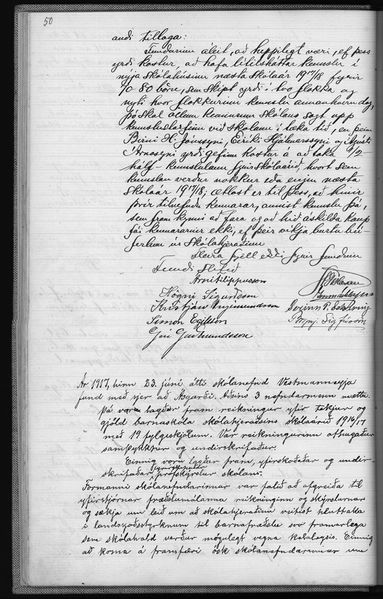 50
andi tillaga:
Fundurinn áleit, að heppilegt væri, ef þess
yrði kostur, að hafa lítilsháttar kennslu í
nýja skólahúsinu næsta skólaár 1917/18 fyrir
70-80 börn, sem skipt yrði í tvo flokka og
nyti hvor flokkurinn kennslu annanhvorn dag,
þó skal öllum kennurum skólans sagt upp
kennslustörfum við skólann í tæka tíð, en þeim
Birni H. Jónssyni, Eiríki Hjálmarssyni og Ágústi
Árnasyni yrði gefinn kostur á að taka 1/2
hálf kennslulaun fyrir skólaárið, hvort sem
kennslan verður nokkur eða engin næsta
skólaár 1917/18; ætlast er til þess, að hinir
þrír tilnefndu kennarar, annist kennslu þá,
sem fram kynni að fara og að hið áskilda kaup
fái kennararnir ekki, ef þeir víkja burtu hér
úr skólahjeraðinu
Fleira fjell ekki fyrir fundinum
Fundi slitið
Árni Filippusson
Högni Sigurðsson
Kristján Ingimundsson
Símon Egilsson
Guðmundsson
Ár 1917, hinn 23. júní átti skólanefnd Vestmannaeyja
fund með sjer að Ásgarði. Aðeins 3 nefndarmenn mættu
Þá voru lagðar fram reikningar yfir tekjur og
gjöld barnaskóla skólahjeraðsins skólaárið 1916/17
með 19 fylgiskjölum. Var reikningurinn athugaður
samþykktur og undirskrifaður.
Einnig voru lagðar fram, yfirskoðaðar og undir-
skrifaðar prófskýrslur skólans.
Formanni skólanefndarinnar var falið að afgreiða til
yfirstjórnar fræðslumálanna reikninginn og skýrslurnar
og sækja um leið um að skólahjeraðinu veitist hluttaka
í landssjóðsstyrknum til barnafræðslu svo framarlega
sem skólahald verður mögulegt vegna kolaleysis. Einnig
að koma á framfæri ósk skólanefndarinnar um